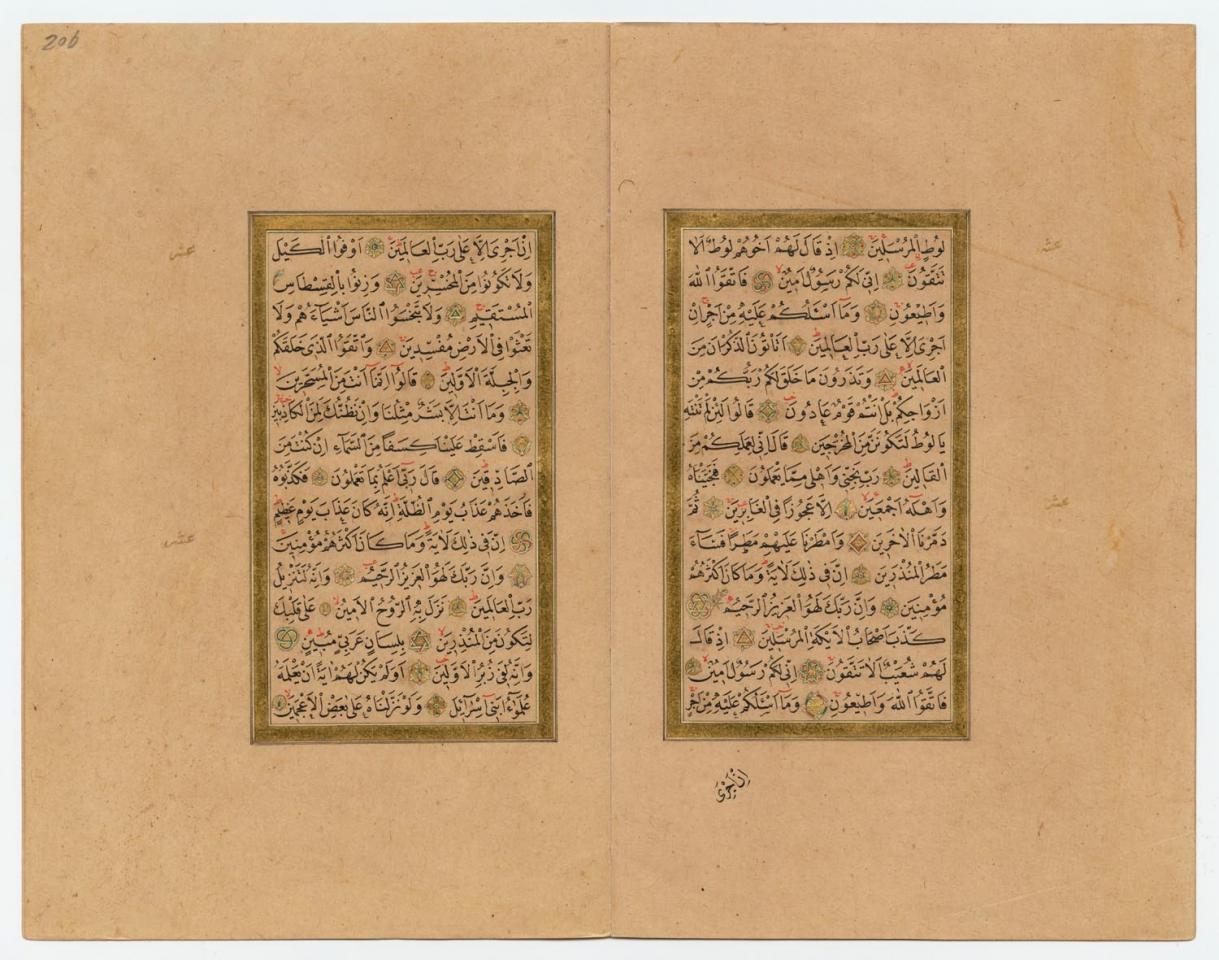 206
لُوطٍ الْمُرْسَلِينَ اِذْ قَالَ لَهُمْ اَخُوهُمْ لُوطٌ اَلَا
عشر
تَتَّقُونَ اِنِّى لَكُمْ رَسُولٌ اَمِينٌ فَاتَّقُوا اللهَ
وَاَطِيعُونِ وَمَٓا اَسْـَٔلُكُمْ عَلَيْهِ مِنْ اَجْرٍ اِنْ
اَجْرِىَ اِلَّا عَلٰى رَبِّ الْعَالَمِينَ اَتَاْتُونَ الذُّكْرَانَ مِنَ
الْعَالَمِينَ وَتَذَرُونَ مَا خَلَقَ لَكُمْ رَبُّكُمْ مِنْ
اَزْوَاجِكُمْ بَلْ اَنْتُمْ قَوْمٌ عَادُونَ قَالُوا لَئِنْ لَمْ تَنْتَهِ
يَا لُوطُ لَتَكُونَنَّ مِنَ الْمُخْرَجِينَ قَالَ اِنِّى لِعَمَلِكُمْ مِنَ
الْقَالِينَ رَبِّ نَجِّنِى وَاَهْلِى مِمَّا يَعْمَلُونَ فَنَجَّيْنَاهُ
وَاَهْلَهُ اَجْمَعِينَ اِلَّا عَجُوزًا فِى الْغَابِرِينَ ثُمَّ
عشر
دَمَّرْنَا الْاٰخَرِينَ وَاَمْطَرْنَا عَلَيْهِمْ مَطَرًا فَسَٓاءَ
مَطَرُ الْمُنْذَرِينَ اِنَّ فِى ذٰلِكَ لَاٰيَةً وَمَا كَانَ اَكْثَرُهُمْ
مُؤْمِنِينَ وَاِنَّ رَبَّكَ لَهُوَ الْعَزِيزُ الرَّحِيمُ
كَذَّبَ اَصْحَابُ الْاَيْكَةِ الْمُرْسَلِينَ اِذْ قَالَ
لَهُمْ شُعَيْبٌ اَلَا تَتَّقُونَ اِنِّى لَكُمْ رَسُولٌ اَمِينٌ
فَاتَّقُوا اللهَ وَاَطِيعُونِ وَمَٓا اَسْـَٔلُكُمْ عَلَيْهِ مِنْ اَجْرٍ
اِنْ اَجْرِىَ
اِنْ اَجْرِىَ اِلَّا عَلٰى رَبِّ الْعَالَمِينَ اَوْفُوا الْكَيْلَ
عشر
وَلَا تَكُونُوا مِنَ الْمُخْسِرِينَ وَزِنُوا بِالْقِسْطَاسِ
الْمُسْتَقِيمِ وَلَا تَبْخَسُوا النَّاسَ اَشْيَٓاءَهُمْ وَلَا
تَعْثَوْا فِى الْاَرْضِ مُفْسِدِينَ وَاتَّقُوا الَّذِى خَلَقَكُمْ
وَالْجِبِلَّةَ الْاَوَّلِينَ قَالُوا اِنَّمَٓا اَنْتَ مِنَ الْمُسَحَّرِينَ
وَمَٓا اَنْتَ اِلَّا بَشَرٌ مِثْلُنَا وَاِنْ نَظُنُّكَ لَمِنَ الْكَاذِبِينَ
فَاَسْقِطْ عَلَيْنَا كِسَفًا مِنَ السَّمَٓاءِ اِنْ كُنْتَ مِنَ
الصَّادِقِينَ قَالَ رَبِّى اَعْلَمُ بِمَا تَعْمَلُونَ فَكَذَّبُوهُ
فَاَخَذَهُمْ عَذَابُ يَوْمِ الظُّلَّةِ اِنَّهُ كَانَ عَذَابَ يَوْمٍ عَظِيمٍ
اِنَّ فِى ذٰلِكَ لَاٰيَةً وَمَا كَانَ اَكْثَرُهُمْ مُؤْمِنِينَ
عشر
وَاِنَّ رَبَّكَ لَهُوَ الْعَزِيزُ الرَّحِيمُ وَاِنَّهُ لَتَنْزِيلُ
رَبِّ الْعَالَمِينَ نَزَلَ بِهِ الرُّوحُ الْاَمِينُ عَلٰى قَلْبِكَ
لِتَكُونَ مِنَ الْمُنْذِرِينَ بِلِسَانٍ عَرَبِىٍّ مُبِينٍ
وَاِنَّهُ لَفِى زُبُرِ الْاَوَّلِينَ اَوَلَمْ يَكُنْ لَهُمْ اٰيَةً اَنْ يَعْلَمَهُ
عُلَمٰٓؤُا بَنِٓى اِسْرَٓائِلَ وَلَوْ نَزَّلْنَاهُ عَلٰى بَعْضِ الْاَعْجَمِينَ